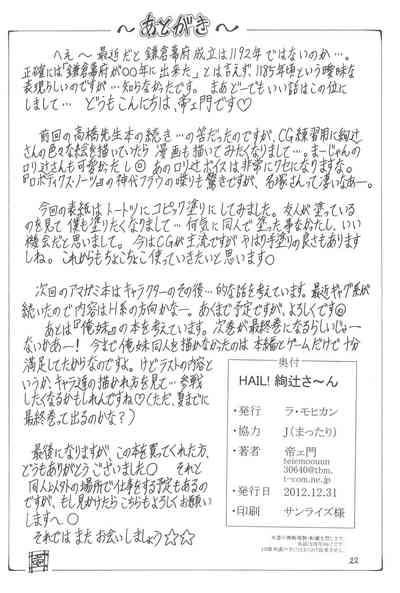 ～あとがき～
へぇ～最近だと鎌倉幕府成立は1192年ではないのか…。
正確には「鎌倉幕府が○○年に出来た」とは言えず、1185年頃という曖昧な
表現らしいのですが…知らなかったです。まあどーでもいい話はこの位に
しまして… どうもこんにちは、帝ヱ門です♡
前回の高橋先生本の続き…の筈だったのですが、CG練習用に絢辻
さんの色々な絵を描いていたら漫画も描いてみたくなりまして…。まーじゃんの
ロリ辻さんも可愛かたし あのロリ辻ボイスは非常にクセになりますな。
『ロボティクス・ノーツ』の神代フラウの喋りも驚きですが、名塚さんって凄いなあー。
今回の表紙はトートツにコピック塗りにしてみました。友人が塗っている
のを見て僕も塗りたくなりまして…何気に同人で塗った事なかたし、いい
機会だと思いまして。今はCGが主流ですがやはり手塗りの良さもあります
しね。これからもちょこちょこ使っていきたいと思います○
次回のアマガミ本はキャラクターのその後…的な話を考えています。最近ギャグ系が
続いたので内容はH系の方向かなー。あくまで予定ですが、よろしくです
あとは『俺妹』の本を考えています。次巻が最終巻になるらしいじゃー
ないかあー！ 今まで俺妹同人を描かなかったのは本編とゲームだけで十分
満足してたからなのですよ。けどラストの内容と
いうか、キャラ達の描かれ方を見て…参戦
したくなるかもしれんですね♡(ただ、夏までに
最終巻って出るのかな？)
最後になりますが、この本を買ってくれた方、
どうもありがとうございました○ それと
同人以外の場所で仕事をする予定もあるの
ですが、もし見かけたらこちらもよろしくお願いし
ますへ○
それではまたお会いしましょう☆☆☆
奥付
HAIL! 絢辻さ～ん
・発行 ラ・モヒカン
・協力 J(まったり)
・著者 帝ヱ門
teiemoounn
30640@tbm.
t-com.ne.jp
・発行日 2012.12.31
・印刷 サンライズ様
22